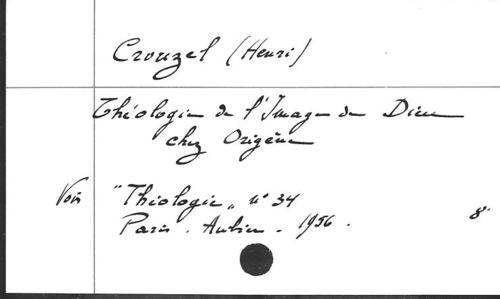 Crouzel (Henri)
Théologie de l'Image de Dieu
chez Origène
Voir "Théologie" n° 34
Paris. Aubier. 1956. 8°